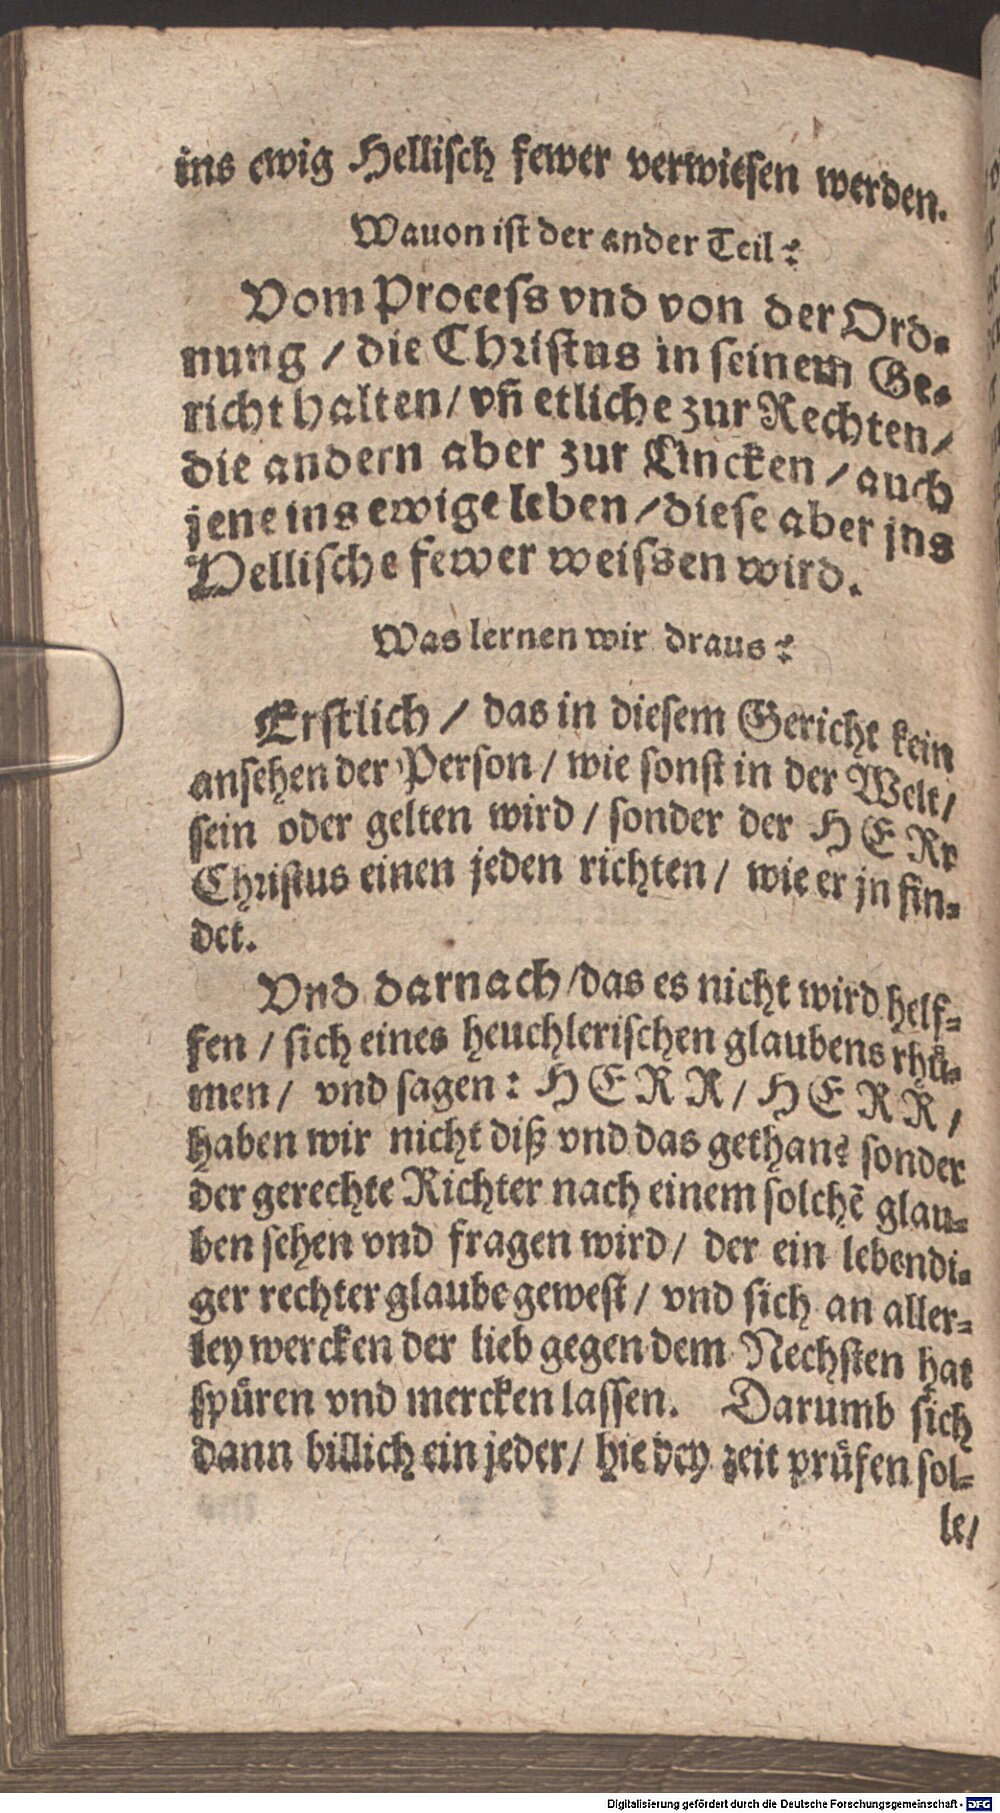 ins ewig Hellisch fewer verwiesen werden.
Wauon ist der ander Teil?
Vom Process vnd von der Ord-
nung / die Christus in seinem Ge-
richt halten / vñ etliche zur Rechten /
die andern aber zur Lincken / auch
jene ins ewige leben / diese aber jns
Hellische fewer weissen wird.
Was lernen wir draus?
Erstlich / das in diesem Gericht kein
ansehen der Person / wie sonst in der Welt /
sein oder gelten wird / sonder der HERr
Christus einen jeden richten / wie er jn fin-
det.
Vnd darnach / das es nicht wird helf-
fen / sich eines heuchlerischen glaubens rhuͤ-
men / vnd sagen: HERR / HERR /
haben wir nicht diß vnd das gethan? sonder
der gerechte Richter nach einem solchẽ glau-
ben sehen vnd fragen wird / der ein lebendi-
ger rechter glaube gewest / vnd sich an aller-
ley wercken der lieb gegen dem Nechsten hat
spuͤren vnd mercken lassen. Darumb sich
dann billich ein jeder / hie bey zeit pruͤfen sol-
le /
Digitalisierung gefördert durch die Deutsche Forschungsgemeinschaft - DFG